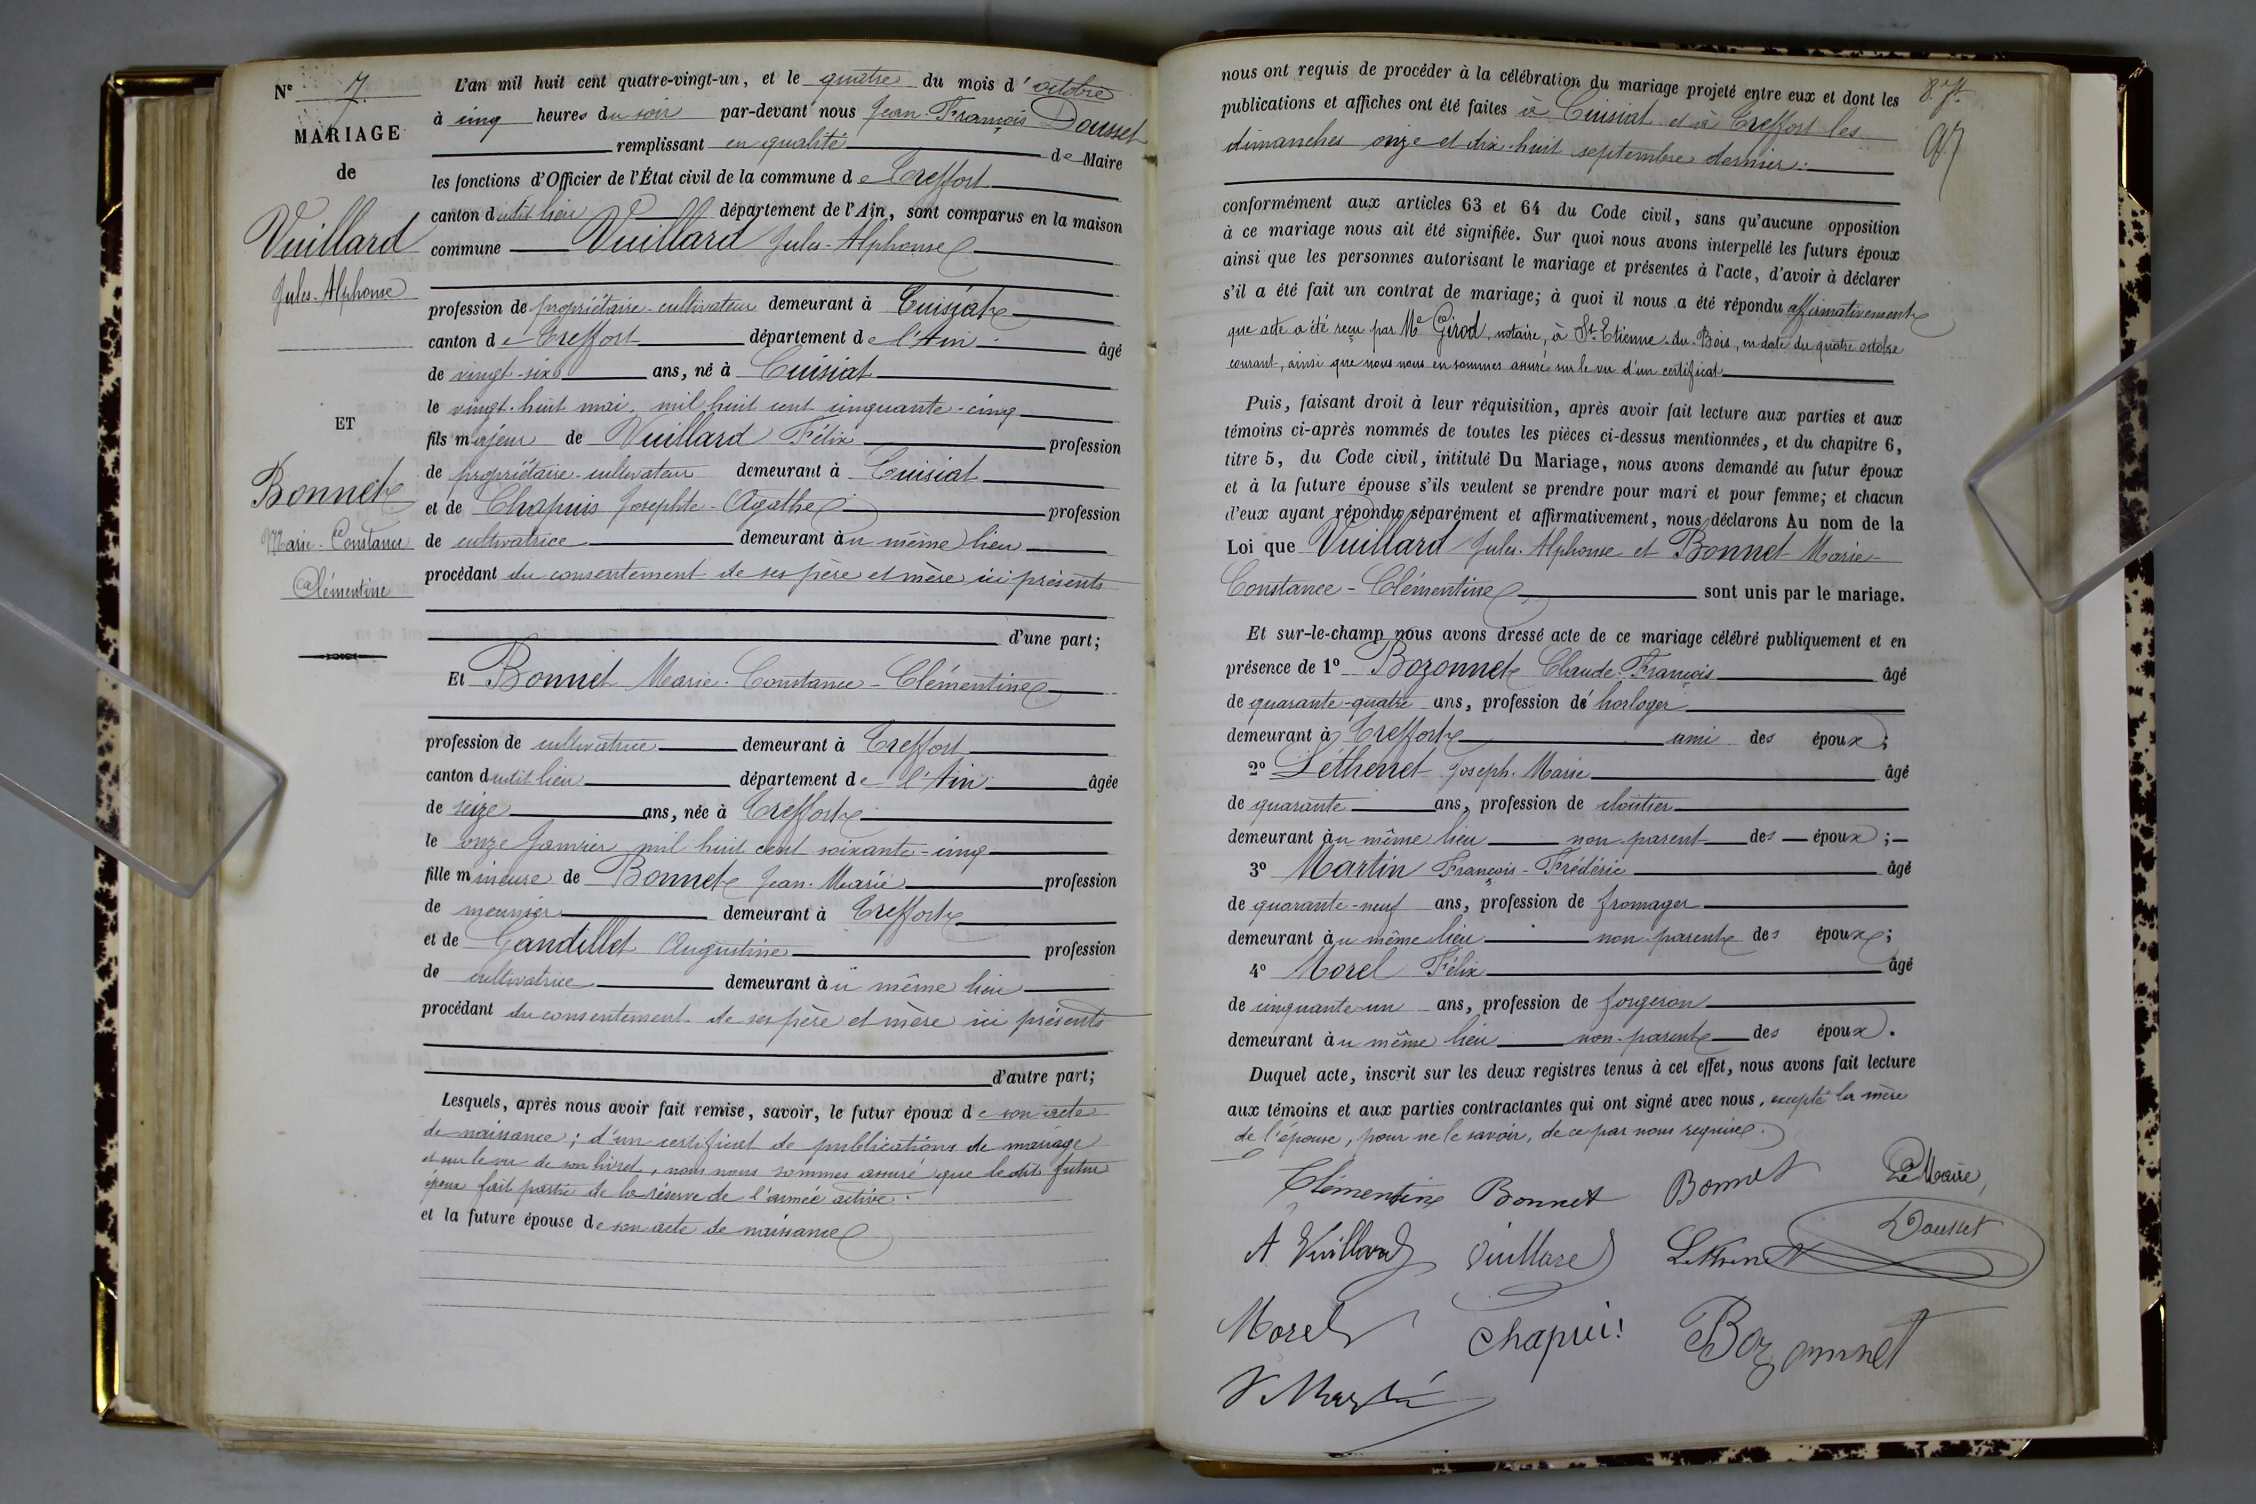 N° 7
MARIAGE
de
Vuillard
Jules-Alphonse
ET
Bonnet
Marie-Constance
Clémentine
L'an mil huit cent quatre-vingt-un, et le quatre du mois d'octobre
à cinq heures du soir par-devant nous Jean-François Dousset
remplissant en qualité de Maire
les fonctions d'Officier de l'État civil de la commune de Treffort
canton dudit lieu département de l'Ain, sont comparus en la maison
commune Vuillard Jules-Alphonse
profession de propriétaire-cultivateur demeurant à Cuisiat
canton de Treffort département de l'Ain âgé
de vingt-six ans, né à Cuisiat
le vingt-huit mai, mil huit cent cinquante-cinq
fils majeur de Vuillard Félix profession
de propriétaire-cultivateur demeurant à Cuisiat
et de Chapuis Josephte-Agathe profession
de cultivatrice demeurant au même lieu
procédant du consentement de ses père et mère ici présents
d'une part;
Et Bonnet Marie-Constance-Clémentine
profession de cultivatrice demeurant à Treffort
canton dudit lieu département de l'Ain âgée
de seize ans, née à Treffort
le onze janvier mil huit cent soixante-cinq
fille mineure de Bonnet Jean-Marie profession
de meunier demeurant à Treffort
et de Gandillet Augustine profession
de cultivatrice demeurant au même lieu
procédant du consentement de ses père et mère ici présents
d'autre part;
Lesquels, après nous avoir fait remise, savoir, le futur époux de son acte
de naissance; d'un certificat de publications de mariage
et sur le vu de son livret, nous nous sommes assuré que ledit futur
époux fait partie de la réserve de l'armée active.
et la future épouse de son acte de naissance
nous ont requis de procéder à la célébration du mariage projeté entre eux et dont les
publications et affiches ont été faites à Cuisiat et à Treffort les
dimanches onze et dix-huit septembre dernier.
97
conformément aux articles 63 et 64 du Code civil, sans qu'aucune opposition
à ce mariage nous ait été signifiée. Sur quoi nous avons interpellé les futurs époux
ainsi que les personnes autorisant le mariage et présentes à l'acte, d'avoir à déclarer
s'il a été fait un contrat de mariage; à quoi il nous a été répondu affirmativement
que acte a été reçu par Me Girod, notaire, à St-Etienne-du-Bois, en date du quatre octobre
courant, ainsi que nous nous en sommes assuré sur le vu d'un certificat
Puis, faisant droit à leur réquisition, après avoir fait lecture aux parties et aux
témoins ci-après nommés de toutes les pièces ci-dessus mentionnées, et du chapitre 6,
titre 5, du Code civil, intitulé Du Mariage, nous avons demandé au futur époux
et à la future épouse s'ils veulent se prendre pour mari et pour femme; et chacun
d'eux ayant répondu séparément et affirmativement, nous déclarons Au nom de la
Loi que Vuillard Jules-Alphonse et Bonnet Marie-
Constance-Clémentine sont unis par le mariage.
Et sur-le-champ nous avons dressé acte de ce mariage célébré publiquement et en
présence de 1° Bozonnet Claude-François âgé
de quarante-quatre ans, profession de horloger
demeurant à Treffort ami des époux;
2° Léthenet Joseph-Marie âgé
de quarante ans, profession de cloutier
demeurant au même lieu non parent des époux;
3° Martin François-Frédéric âgé
de quarante-neuf ans, profession de fromager
demeurant au même lieu non parent des époux;
4° Morel Félix âgé
de cinquante-un ans, profession de forgeron
demeurant au même lieu non-parent des époux.
Duquel acte, inscrit sur les deux registres tenus à cet effet, nous avons fait lecture
aux témoins et aux parties contractantes qui ont signé avec nous, excepté la mère
de l'épouse, pour ne le savoir, de ce par nous requise.
Clémentine Bonnet Bonnet Le Maire,
A Vuillard Vuillard Lethenet Dousset
Morel Chapuis Bozonnet
F Martin